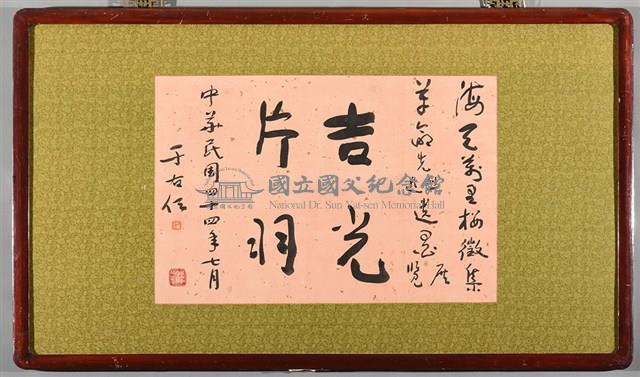 海天萬里樓徵集
先生遺墨展覽
吉光
片羽
中華民國四十四年七月
于右任
國立國父紀念館
National Dr. Sun Yat-sen Memorial Hall